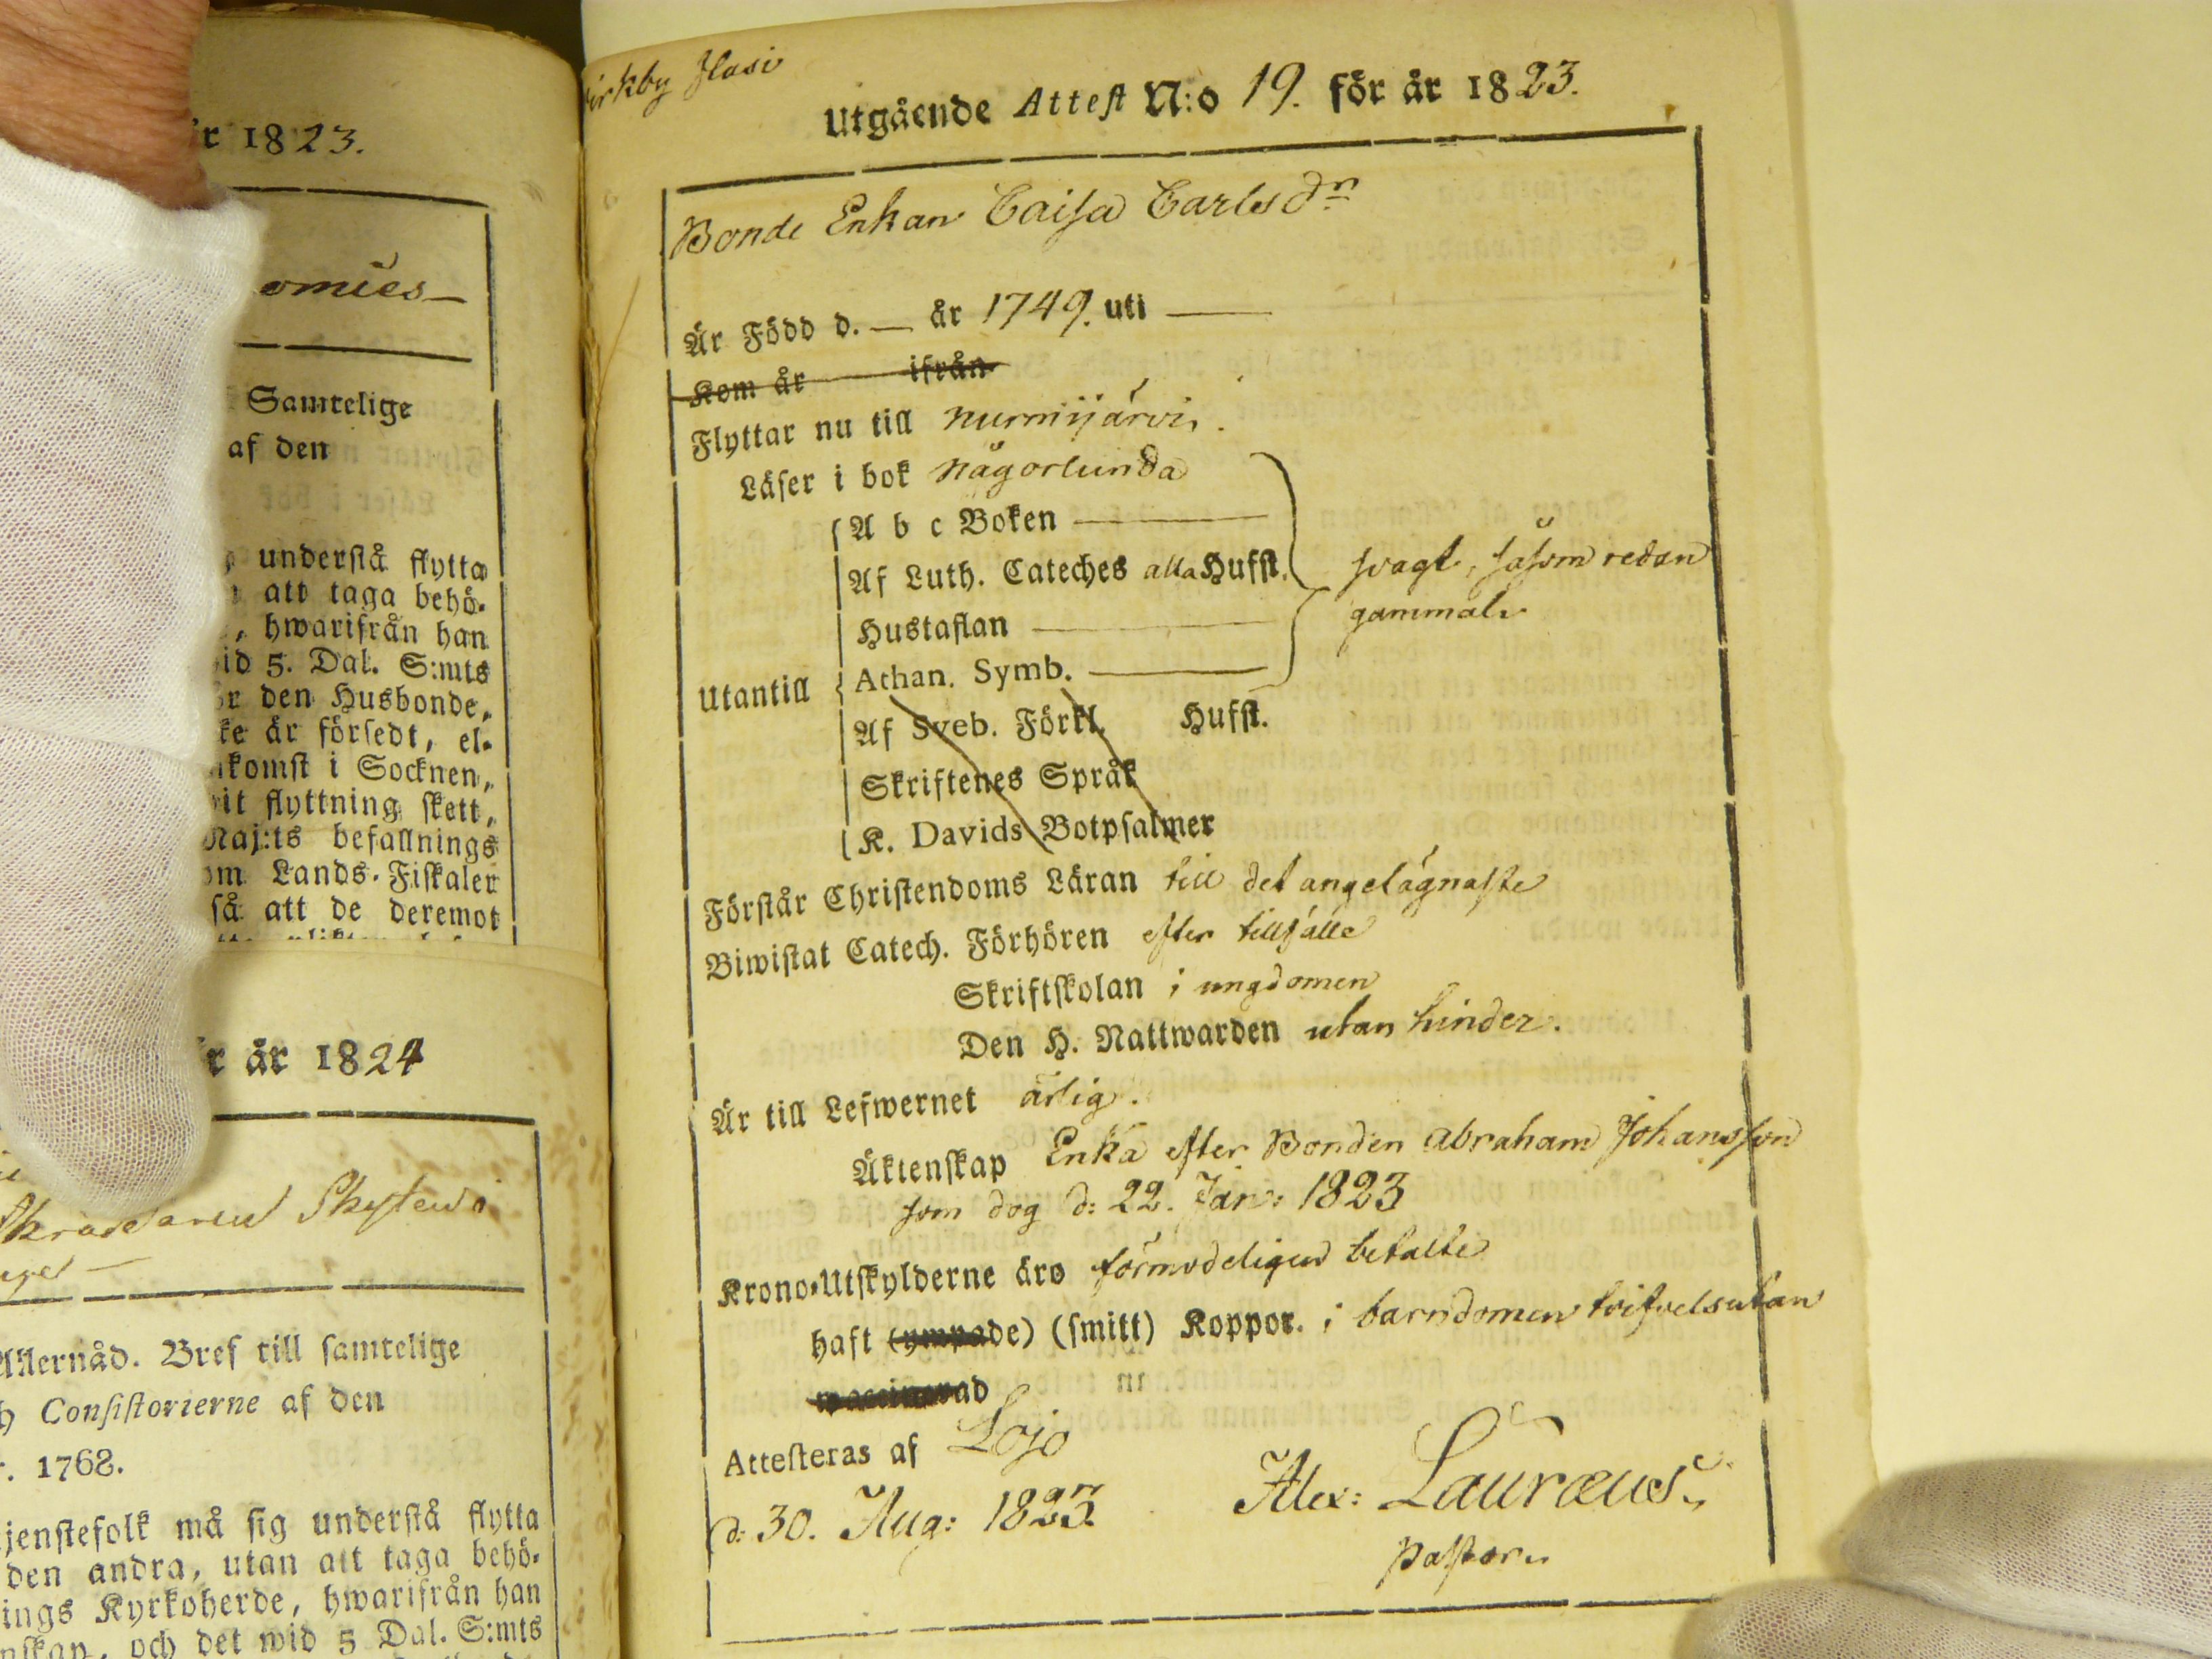 r 1823.
omiés
Samtelige
af den
understå flytta
att taga behö-
, hwarifrån han
id 5. Dal. S:mts
r den Husbonde,
ke är försedt, el-
komst i Socknen,
it flyttning skett,
Maj:ts befallnings
om Lands-Fiskaler
så att de deremot
r år 1824
Allernåd. Bref till samtelige
h Consistorierne af den
. 1768.
jenstefolk må sig understå flytta
den andra, utan att taga behö-
ings Kyrkoherde, hwarifrån han
nskap, och det wid 5 Dal. S:mts
irkby Flasi
Utgående Attest N:o 19. för år 1823.
Bonde Enkan Caisa Carlsdr
Är Född d. — år 1749. uti —
Kom år ifrån
Flyttar nu till nurmijärvi.
Läser i bok någorlunda
A b c Boken
Af Luth. Cateches alla Hufst. svagt, såsom redan
Hustaflan gammal.
Utantill Athan. Symb.
Af Sveb. Förkl. Hufst.
Skriftenes Språk
K. Davids Botpsalmer
Förstår Christendoms Läran till det angelägnaste
Biwistat Catech. Förhören efter tillfälle
Skriftskolan i ungdomen
Den H. Nattwarden utan hinder.
Är till Lefwernet ärlig.
Äktenskap Enka efter Bonden Abraham Johansson
som dog d: 22. Jan: 1823
Krono-Utskylderne äro förmodeligen betalte
haft (ympade) (smitt) Koppor. i barndomen tvifvelsutan
waccinerad
Attesteras af Lojo
d: 30. Aug: 1823. Alex: Lauræus.
Pastor.